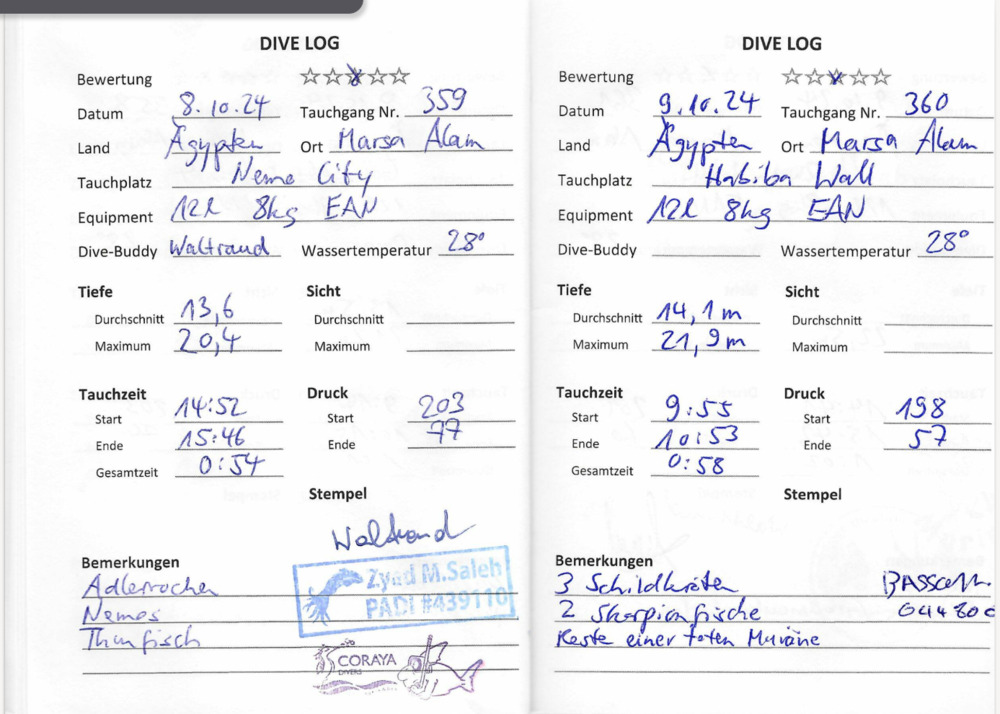 DIVE LOG
Bewertung ☆☆☆☆☆
Datum 8.10.24 Tauchgang Nr. 359
Land Ägypten Ort Marsa Alam
Tauchplatz Nemo City
Equipment 12l 8kg EAN
Dive-Buddy Waltraud Wassertemperatur 28°
Tiefe Sicht
Durchschnitt 13,6 Durchschnitt
Maximum 20,4 Maximum
Tauchzeit Druck
Start 14:52 Start 203
Ende 15:46 Ende 77
Gesamtzeit 0:54
Stempel
Waltraud
Bemerkungen
Adlerrochen
Nemos
Thunfisch
Zyad M.Saleh
PADI #439110
CORAYA
DIVERS
DIVE LOG
Bewertung ☆☆☆☆☆
Datum 9.10.24 Tauchgang Nr. 360
Land Ägypten Ort Marsa Alam
Tauchplatz Habiba Wall
Equipment 12l 8kg EAN
Dive-Buddy Wassertemperatur 28°
Tiefe Sicht
Durchschnitt 14,1m Durchschnitt
Maximum 21,9m Maximum
Tauchzeit Druck
Start 9:55 Start 198
Ende 10:53 Ende 57
Gesamtzeit 0:58
Stempel
Bemerkungen
3 Schildkröten
2 Skorpionfische
Reste einer toten Muräne